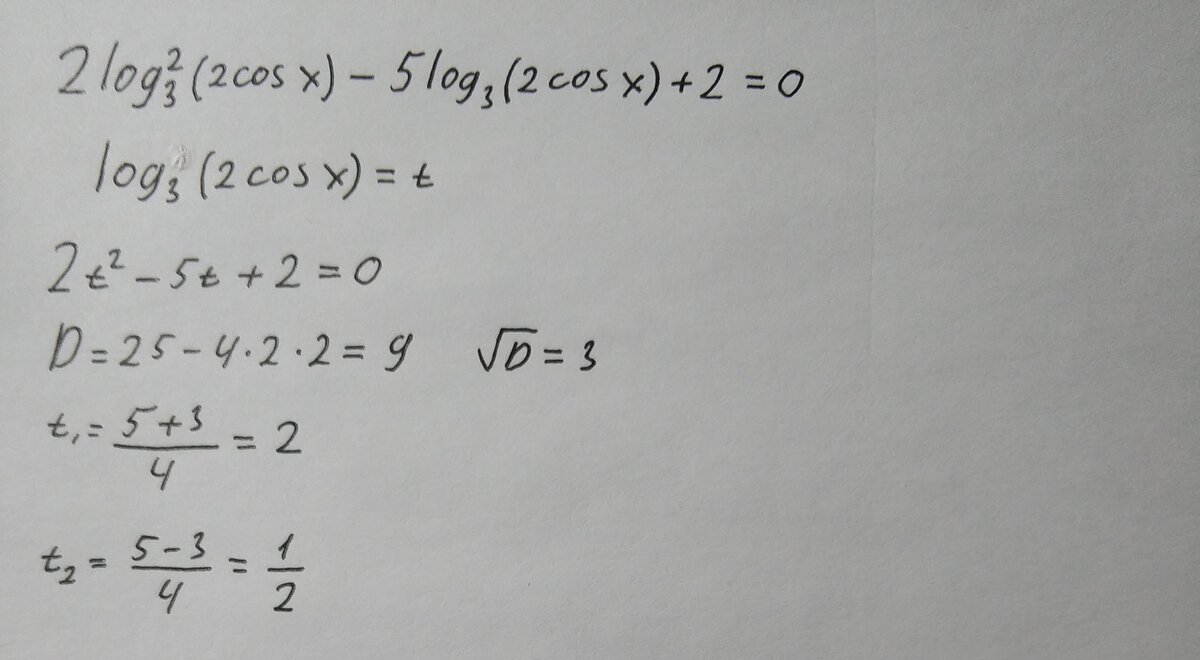 2 log₃² (2cos x) – 5 log₃ (2 cos x) + 2 = 0
log₃ (2 cos x) = t
2t² – 5t + 2 = 0
D = 25 – 4·2·2 = 9 √D = 3
t₁ = (5+3)/4 = 2
t₂ = (5–3)/4 = 1/2